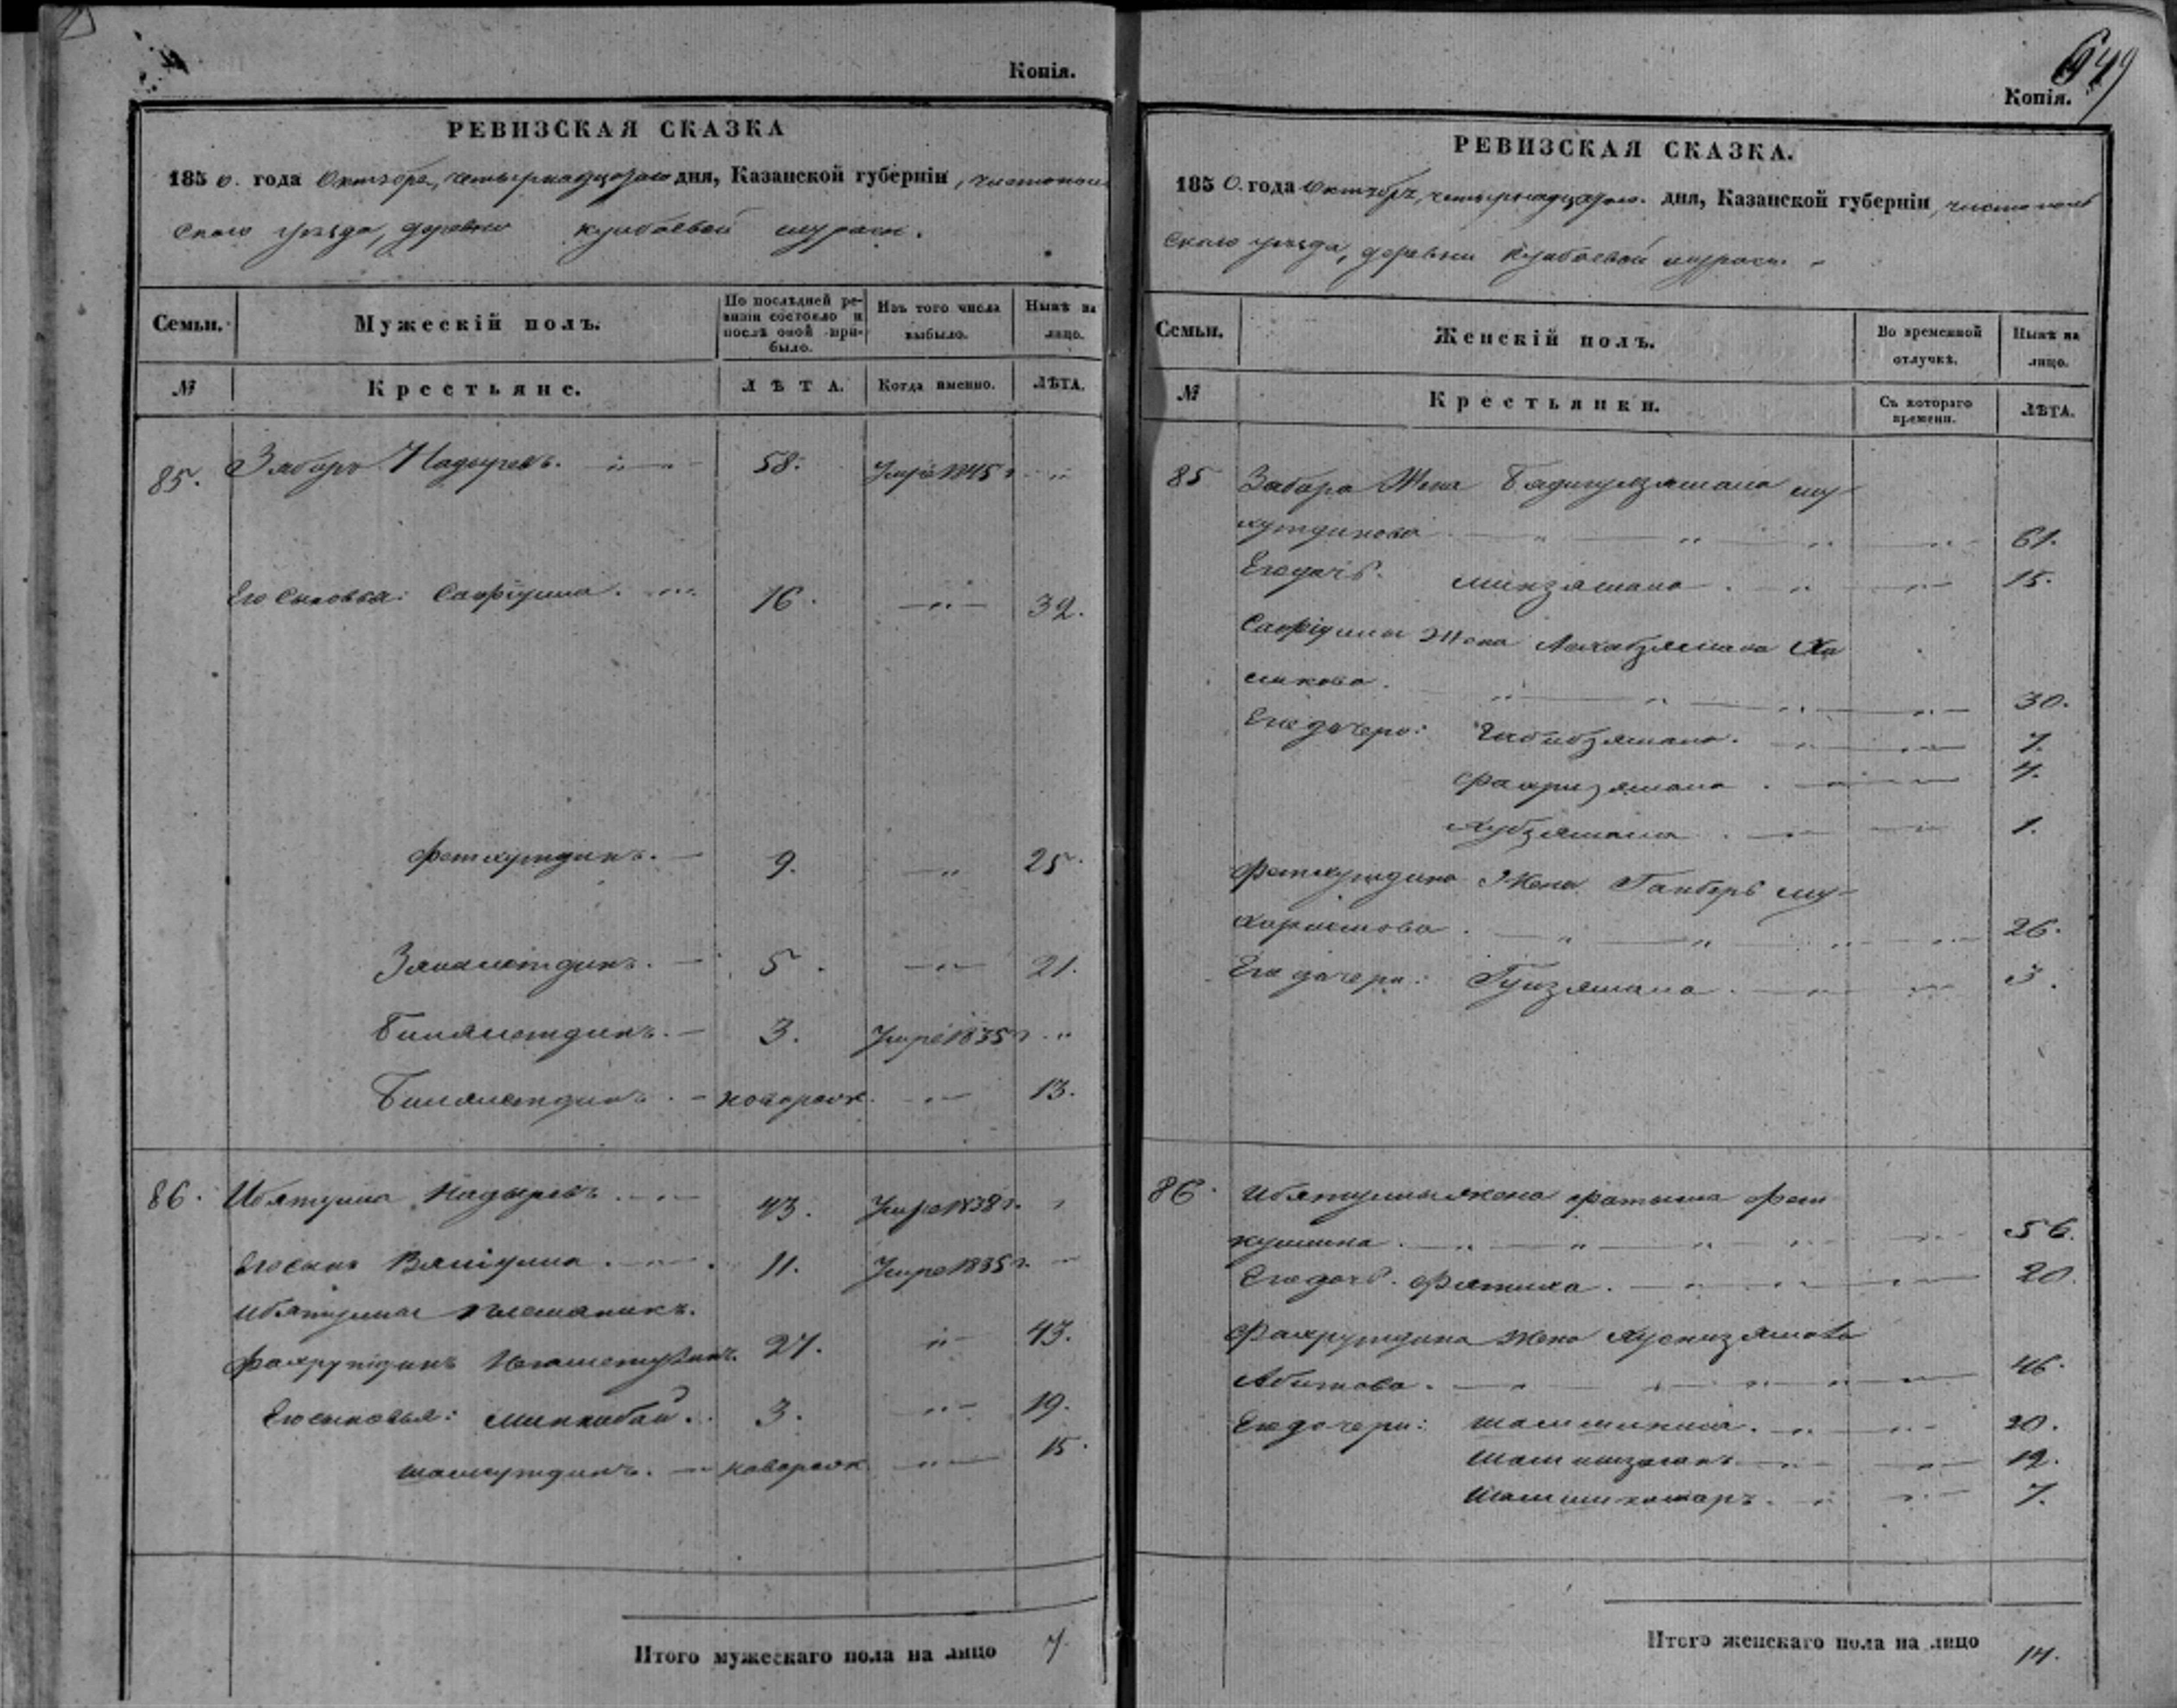 Копія.
РЕВИЗСКАЯ СКАЗКА
1850. года Октября, четырнадцатаго дня, Казанской губерніи, чистополь
скаго уѣзда, деревни кулбаевой мураси.
Семьи. Мужескій полъ. По послѣдней ревизіи состояло и послѣ оной прибыло. Изъ того числа выбыло. Нынѣ на лицо.
№ Крестьяне. ЛѢТА. Когда именно. ЛѢТА.
85. Надыровъ. 58. Умре 1845 г
Его сыновья: Сайфулла. 16. 32.
Фетхутдинъ. 9. 25.
Зямалетдинъ. 5. 21.
3. Умре 1835 г
новорож. 13.
86. Ибятулла Надыровъ. 43. Умре 1838 г.
Его сынъ Валіулла. 11. Умре 1835 г.
Ибятуллы племяникъ.
Фахрутдинъ 27. 43.
Его сыновья: Миннибай. 3. 19.
новорож 15.
Итого мужескаго пола на лицо 7.
649
Копія.
РЕВИЗСКАЯ СКАЗКА.
1850. года Октября, четырнадцатаго. дня, Казанской губерніи, чистополь
скаго уѣзда, деревни Кулбаевой мураси.
Семьи. Женскій полъ. Во временной отлучкѣ. Нынѣ на лицо.
№ Крестьянки. Съ котораго времени. ЛѢТА.
85 Забира Жена Бадигулзямала му-
хутдинова 61.
Его дочь. Минзямала. 15.
Сайфуллы Жена Ха
30.
Его дочери: Габибзямала. 7.
Фахризямала. 4.
Хубзямала. 1.
Фетхутдина Жена му-
26.
Его дочери: Гулзямала. 3.
86. Ибятуллы жена Фатыма Фет
куллина. 56.
Его дочь. Фатиха. 20.
Фахрутдина жена Хуснизямала
Абитова. 46.
Его дочери: 20.
12.
7.
Итого женскаго пола на лицо 14.